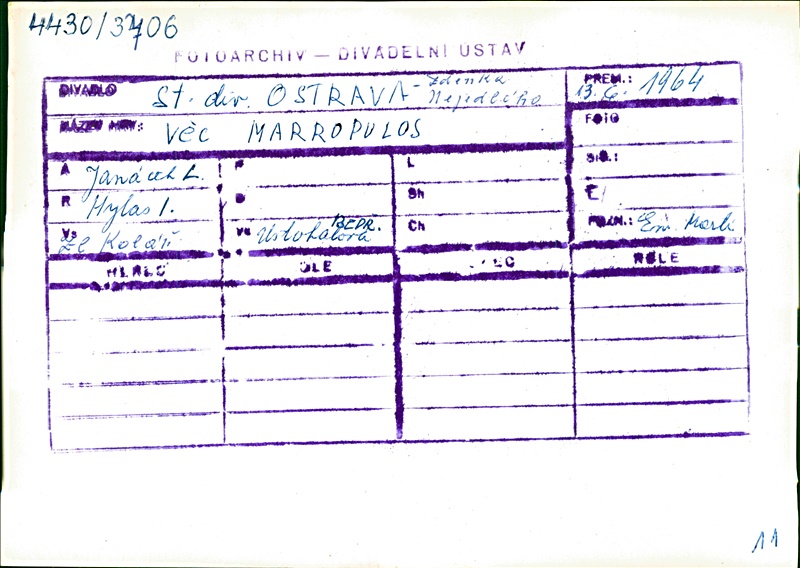 4430/3706
FOTOARCHIV — DIVADELNÍ ÚSTAV
DIVADLO St. div. OSTRAVA - Zdeňka Nejedlého
PREM.: 13. 6. 1964
NÁZEV HRY: VĚC MARROPULOS
FOTO
A Janáček L.
P
L
SIG.:
R Hylas I.
D
Sh
Č/
Vs Zd. Kolář
Vk Ustohalová BEDŘ.
Ch
POZN.: Em. Marti
HEREC ROLE HEREC ROLE
11